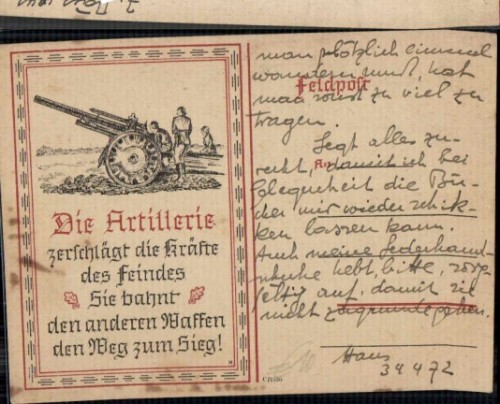 Die Artillerie
zerschlägt die Kräfte
des Feindes
Sie bahnt
den anderen Waffen
den Weg zum Sieg!
Feldpost
man plötzlich einmal
wandern muß, hat
man sonst zu viel zu
tragen.
Legt alles zu-
recht, damit ich bei
Gelegenheit die Bü-
cher mir wieder schik-
ken lassen kann.
Auch meine Lederhand-
schuhe hebt, bitte, sorg-
fältig auf, damit sie
nicht zugrunde gehen.
Hans
34472